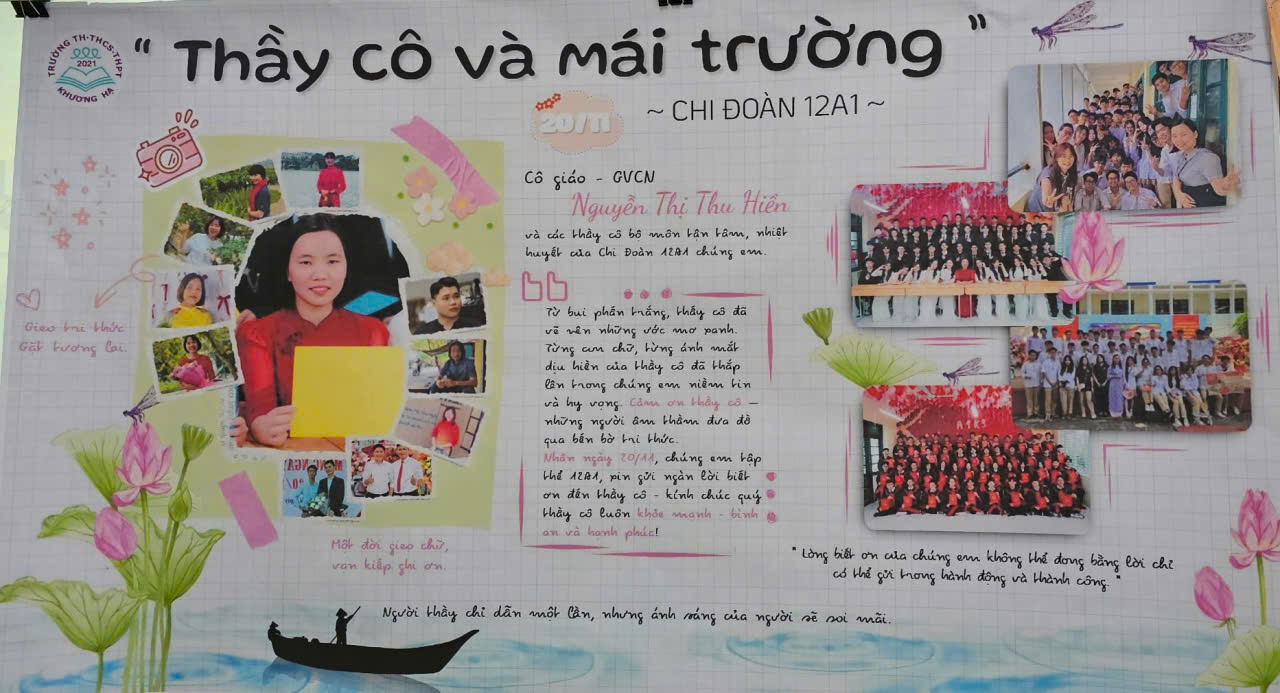 TRƯỜNG TH-THCS-THPT
2021
KHƯƠNG HẠ
“ Thầy cô và mái trường ”
~ CHI ĐOÀN 12A1 ~
20/11
Cô giáo - GVCN
Nguyễn Thị Thu Hiền
và các thầy cô bộ môn tận tâm, nhiệt
huyết của Chi Đoàn 12A1 chúng em.
Từ bụi phấn trắng, thầy cô đã
vẽ nên những ước mơ xanh.
Từng con chữ, từng ánh mắt
dịu hiền của thầy cô đã thắp
lên trong chúng em niềm tin
và hy vọng. Cảm ơn thầy cô –
những người âm thầm đưa đò
qua bến bờ tri thức.
Nhân ngày 20/11, chúng em tập
thể 12A1, xin gửi ngàn lời biết
ơn đến thầy cô - kính chúc quý
thầy cô luôn khỏe mạnh - bình
an và hạnh phúc!
Gieo tri thức
Gặt tương lai.
Một đời gieo chữ,
vạn kiếp ghi ơn.
“ Lòng biết ơn của chúng em không thể đong bằng lời chỉ
có thể gửi trong hành động và thành công. ”
Người thầy chỉ dẫn một lần, nhưng ánh sáng của người sẽ soi mãi.